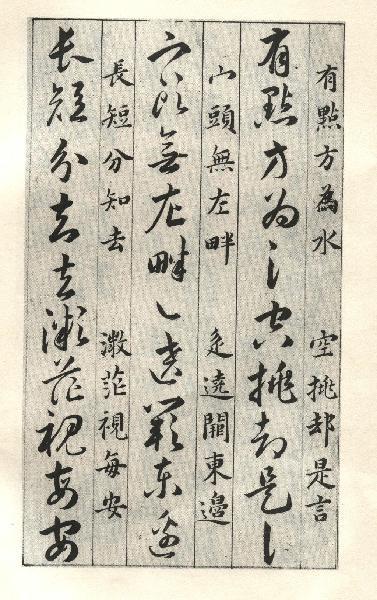 有點方為水 空挑却是言
有點方為氵空挑却是讠
宀頭無左畔 辵遶闕東邊
宀頭無左畔辶遶闕東邊
長短分知去 溦茫視每安
長短分去去溦茫視每安